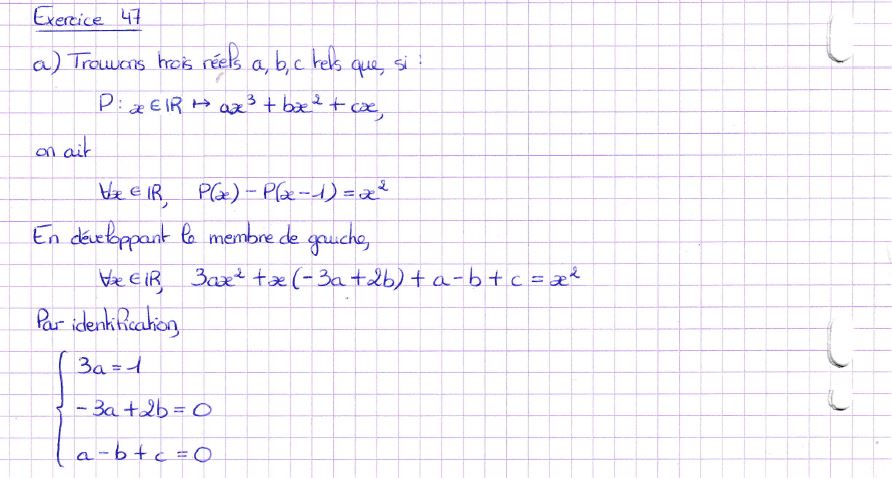 Exercice 47
a) Trouvons trois réels a, b, c tels que, si :
P : x ∈ ℝ ↦ ax³ + bx² + cx,
on ait
∀x ∈ ℝ, P(x) - P(x-1) = x²
En développant le membre de gauche,
∀x ∈ ℝ, 3ax² + x(-3a+2b) + a-b+c = x²
Par identification,
3a = 1
-3a + 2b = 0
a - b + c = 0